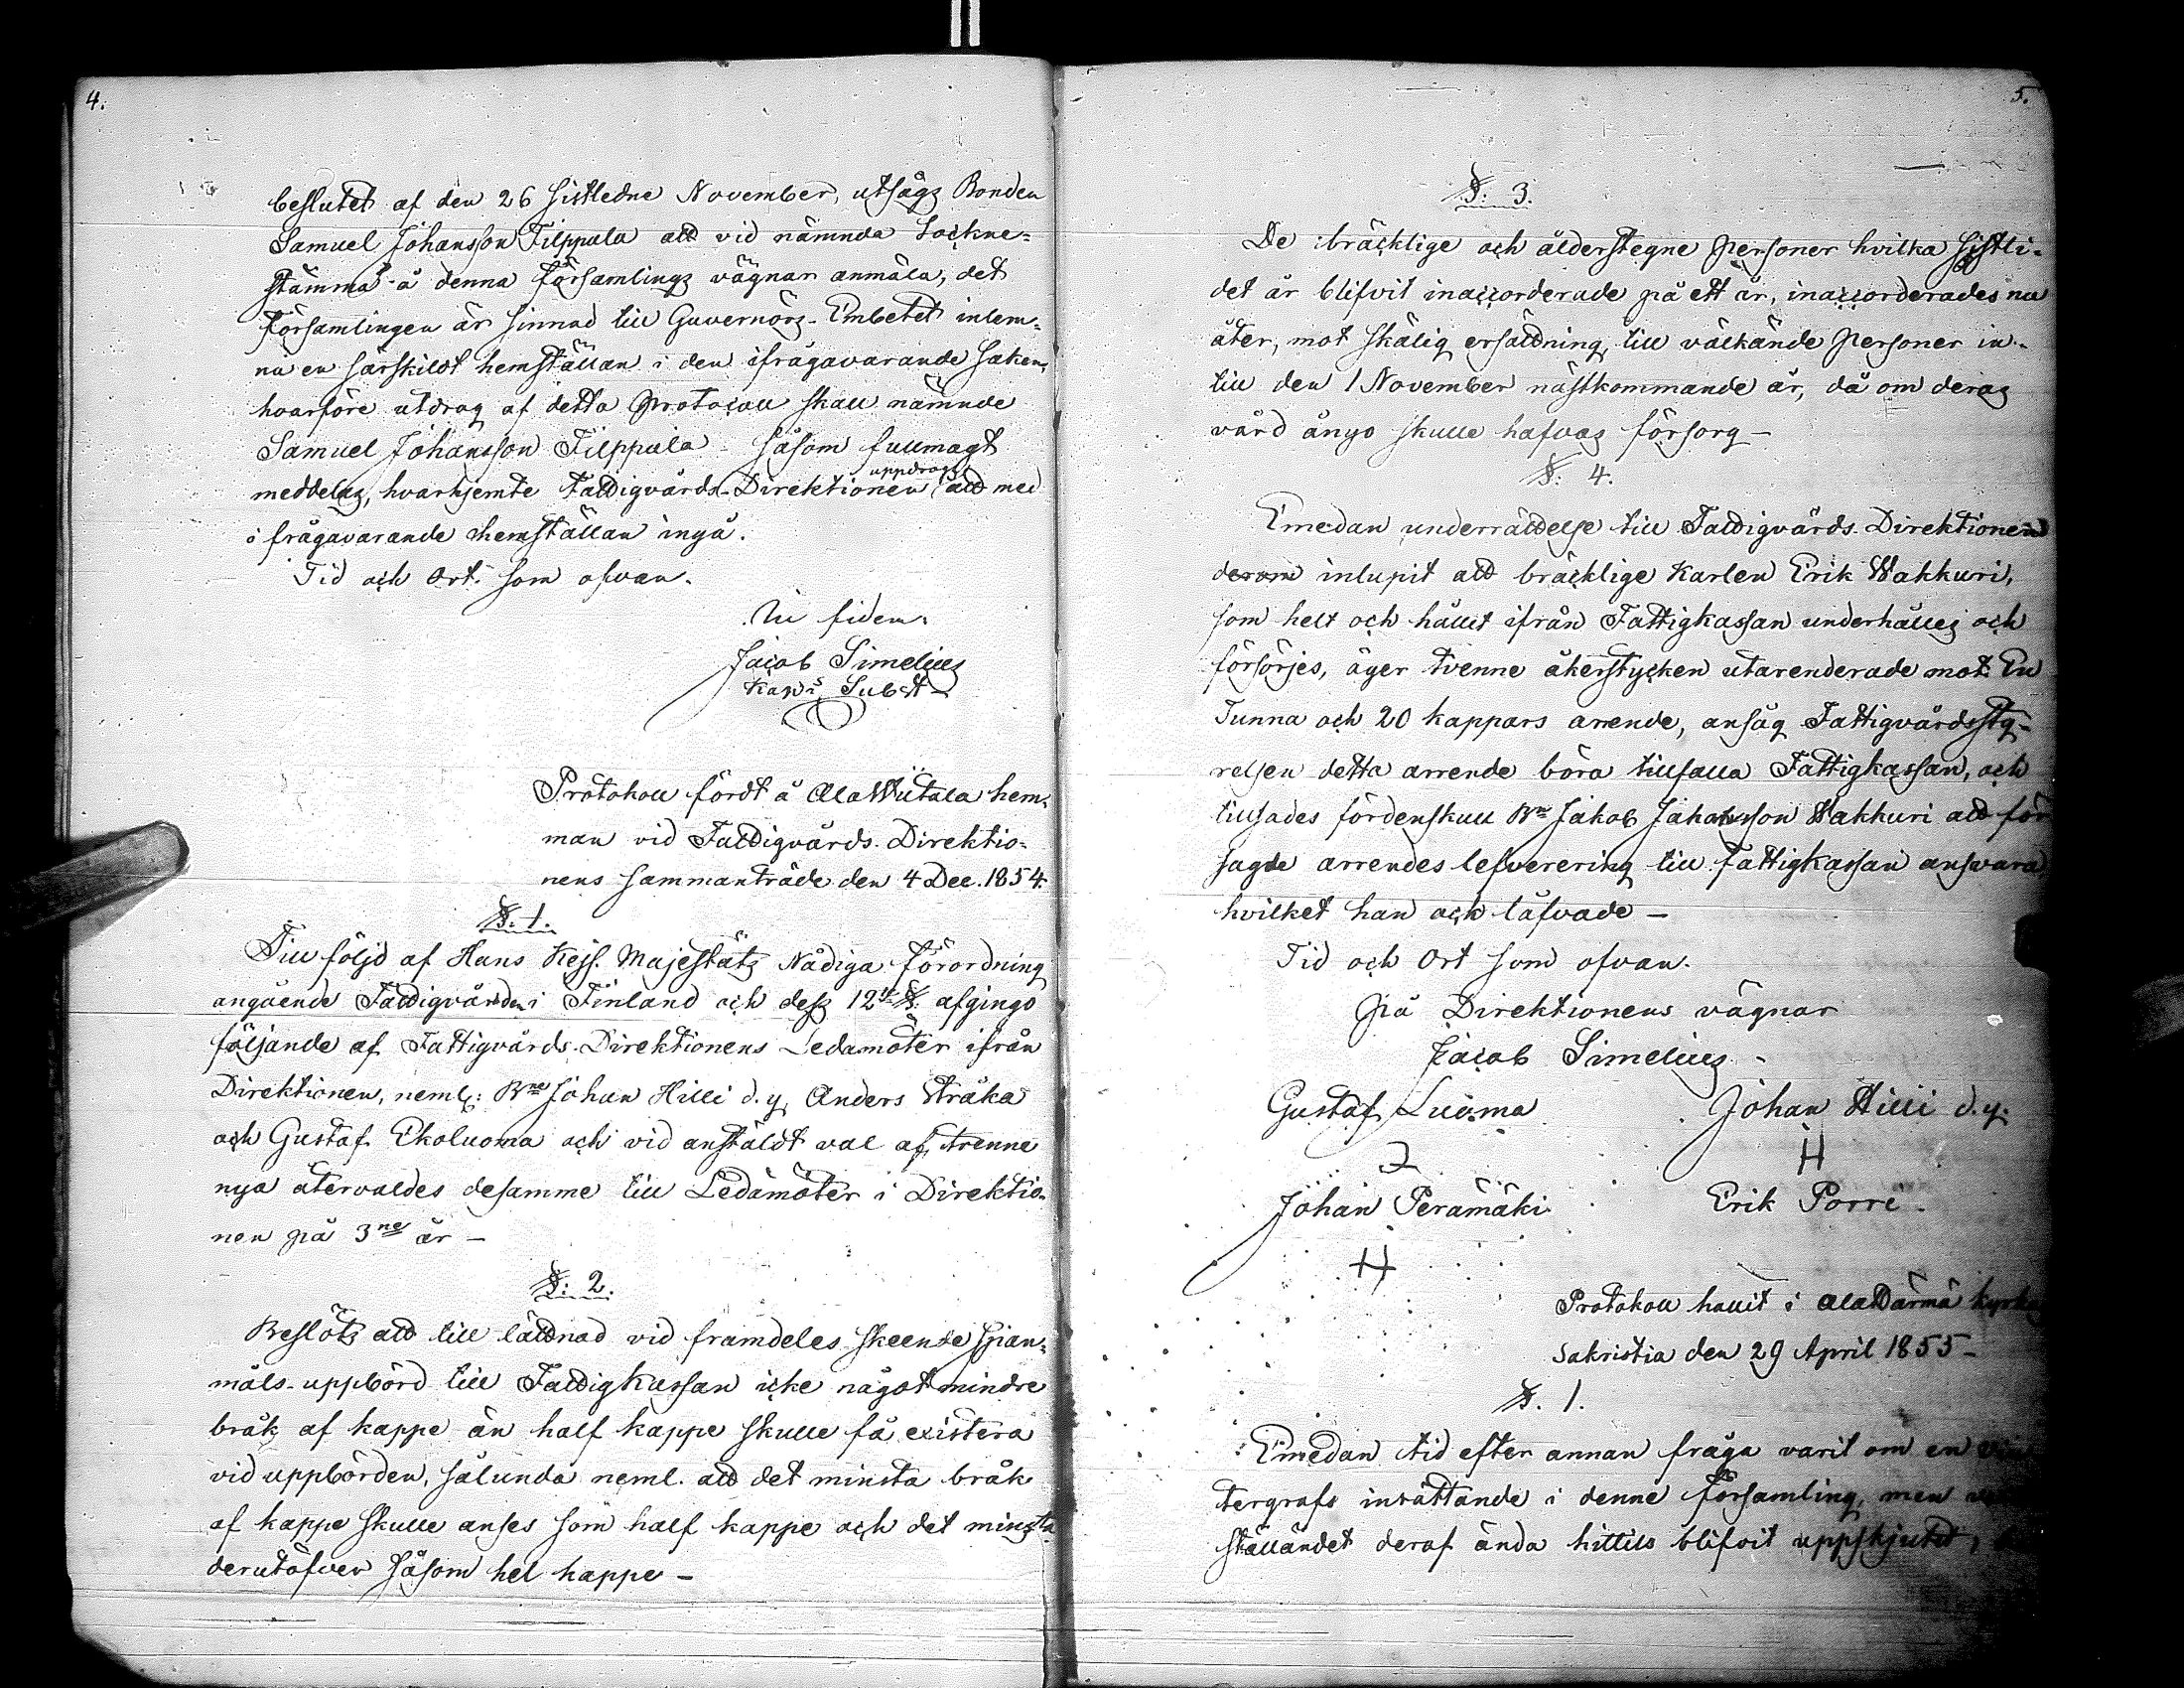 4.
beslutet af den 26 sistledne November, utsågs Bonden
Samuel Johansson Filppula att vid nämnda Sockne-
stämma å denna Församlings vägnar anmäla, det
Församlingen är sinnad till Guvernörs-Embetet inlem-
na en särskildt hemställan i den ifrågavarande saken,
hvarföre utdrag af detta Protocoll skall nämnde
Samuel Johansson Filppula såsom fullmagt
meddelas, hvarhjemte Fattigvårds-Direktionen uppdrogs att med
ifrågavarande hemställan ingå.
Tid och Ort som ofvan.
In fidem
Jacob Simelius
Kap:s Subst.
Protokoll fördt å Ala Wiitala hem-
man vid Fattigvårds-Direktio-
nens sammanträde den 4 Dec. 1854.
§. 1.
Till följd af Hans Kejs. Majestäts Nådiga Förordning
angående Fattigvården i Finland och dess 12te §. afgingo
följande af Fattigvårds-Direktionens Ledamöter ifrån
Direktionen, neml: Bne Johan Hilli d.y. Anders Wråka
och Gustaf Ekoluoma och vid anstäldt val af trenne
nya återvaldes desamme till Ledamöter i Direktio-
nen på 3ne år –
§: 2.
Beslöts att till lättnad vid framdeles skeende span-
måls-uppbörd till Fattigkassan icke något mindre
bråk af kappe än half kappe skulle få existera
vid uppbörden, sålunda neml. att det minsta bråk
af kappe skulle anses som half kappe och det minsta
derutöfver såsom hel kappe –
5.
§: 3.
De bräcklige och ålderstegne Personer hvilka sistli-
det år blifvit inaccorderade på ett år, inaccorderades nu
åter, mot skälig ersättning, till välkände Personer in-
till den 1 November nästkommande år, då om deras
vård ånyo skulle hafvas försorg –
§: 4.
Emedan underrättelse till Fattigvårds-Direktionen
derom inlupit att bräcklige Karlen Erik Wakkuri,
som helt och hållit ifrån Fattigkassan underhålles och
försörjes, äger tvenne åkerstycken utarenderade mot En
Tunna och 20 kappars arrende, ansåg Fattigvårdssty-
relsen detta arrende böra tillfalla Fattigkassan, och
tillsades fördenskull Bn Jakob Jakobsson Wakkuri att för
sagde arrendes lefverering till Fattigkassan ansvara,
hvilket han ock låfvade –
Tid och Ort som ofvan.
På Direktionens vägnar
Jacob Simelius
Gustaf Luoma Johan Hilli d.y.
Johan Perämäki Erik Porre
Protokoll hållit i Ala Härmä
Sakristia den 29 April 1855 –
§. 1.
Emedan tid efter annan fråga varit om en
tergrafs inrättande i denne Församling, men
ställandet deraf ända hittills blifvit uppskjutet,